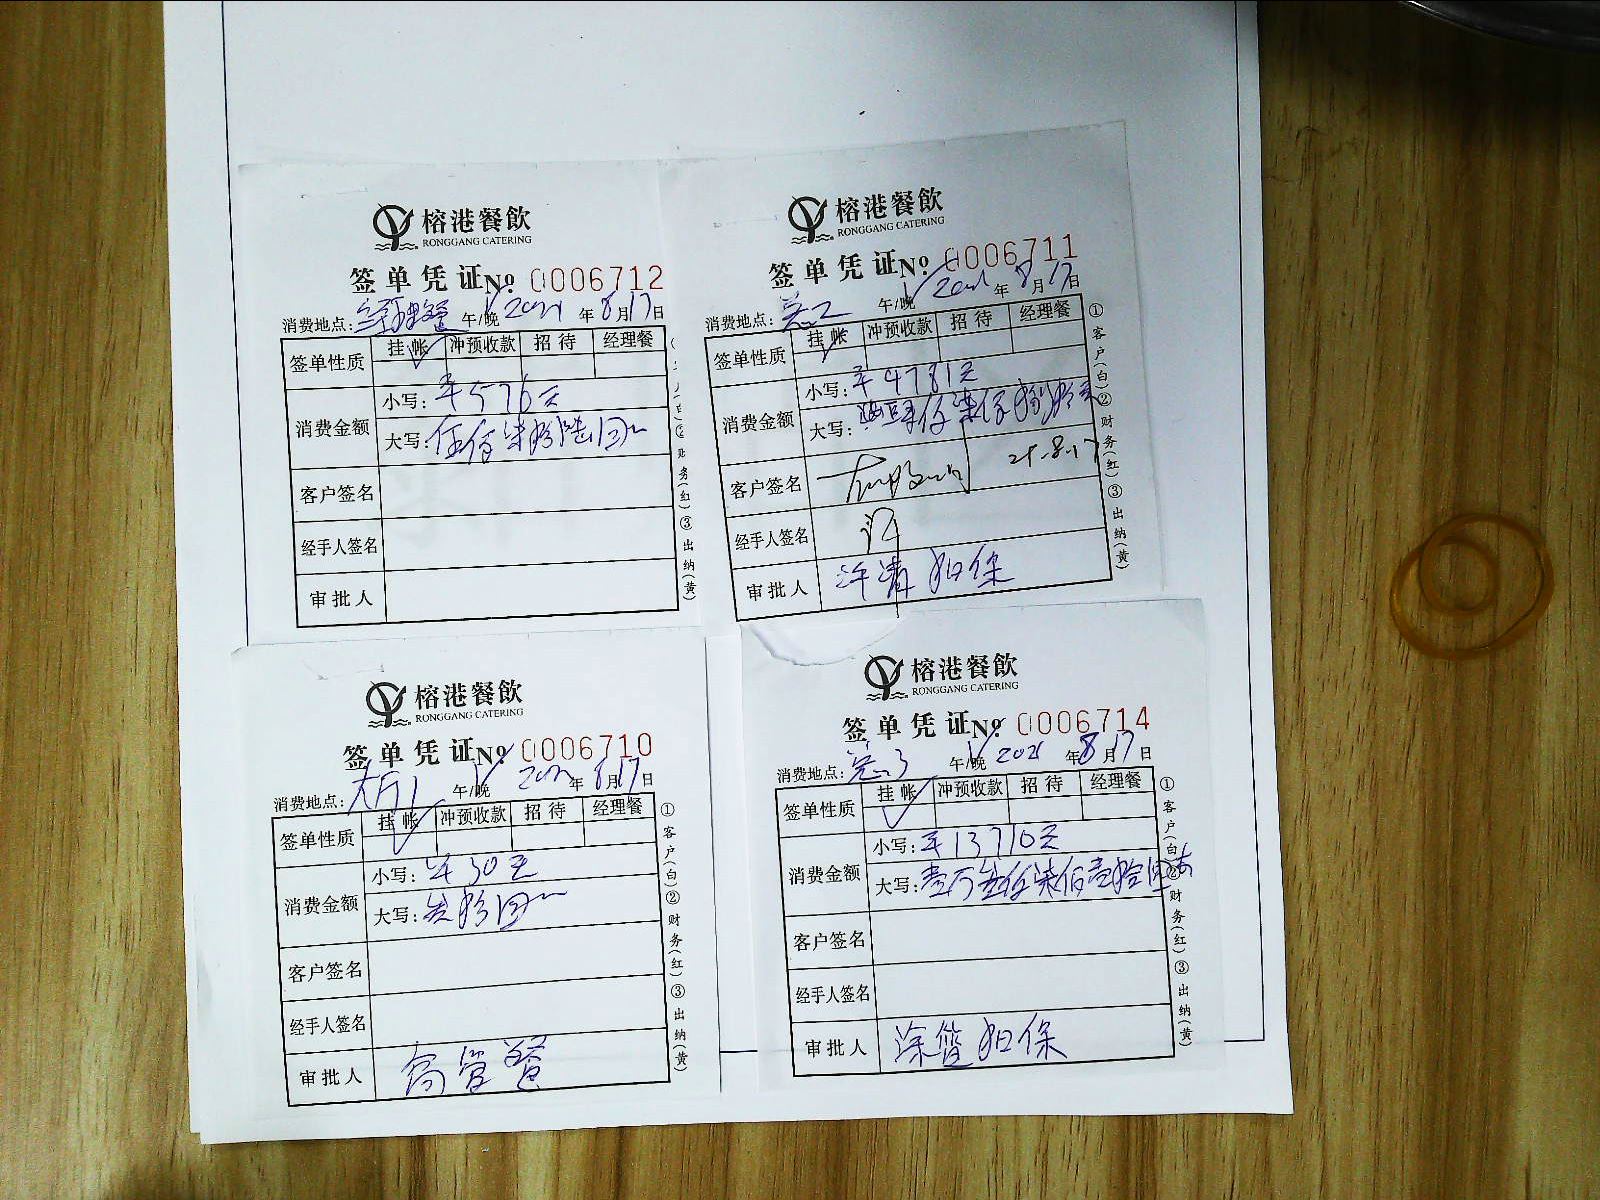 榕港餐飲
RONGGANG CATERING
签单凭证 № 0006712
消费地点： 午/晚 2021 年 8月17日
签单性质 挂帐 冲预收款 招待 经理餐
消费金额
小写：￥576元
大写：伍佰柒拾陆圆
客户签名
经手人签名
审批人
财务(红) ③ 出纳(黄)
榕港餐飲
RONGGANG CATERING
签单凭证 № 0006711
消费地点： 午/晚 2021 年 8月17日
签单性质 挂帐 冲预收款 招待 经理餐
消费金额
小写：￥4781元
大写：
客户签名 21.8.17
经手人签名
审批人 担保
① 客户(白) ② 财务(红) ③ 出纳(黄)
榕港餐飲
RONGGANG CATERING
签单凭证 № 0006710
消费地点：大厅1 午/晚 2021 年 8月17日
签单性质 挂帐 冲预收款 招待 经理餐
消费金额
小写：￥30元
大写：叁拾圆
客户签名
经手人签名
审批人 高管餐
① 客户(白) ② 财务(红) ③ 出纳(黄)
榕港餐飲
RONGGANG CATERING
签单凭证 № 0006714
消费地点： 午/晚 2021 年 8月17日
签单性质 挂帐 冲预收款 招待 经理餐
消费金额
小写：￥13710元
大写：壹万叁仟柒佰壹拾圆
客户签名
经手人签名
审批人 担保
① 客户(白) ② 财务(红) ③ 出纳(黄)